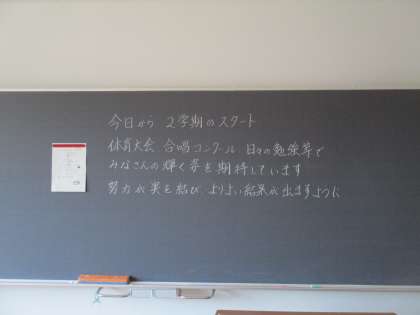 今日から 2学期のスタート
体育大会、合唱コンクール、日々の勉強等で
みなさんの輝く姿を期待しています
努力が実を結び、よりよい結果が出ますように